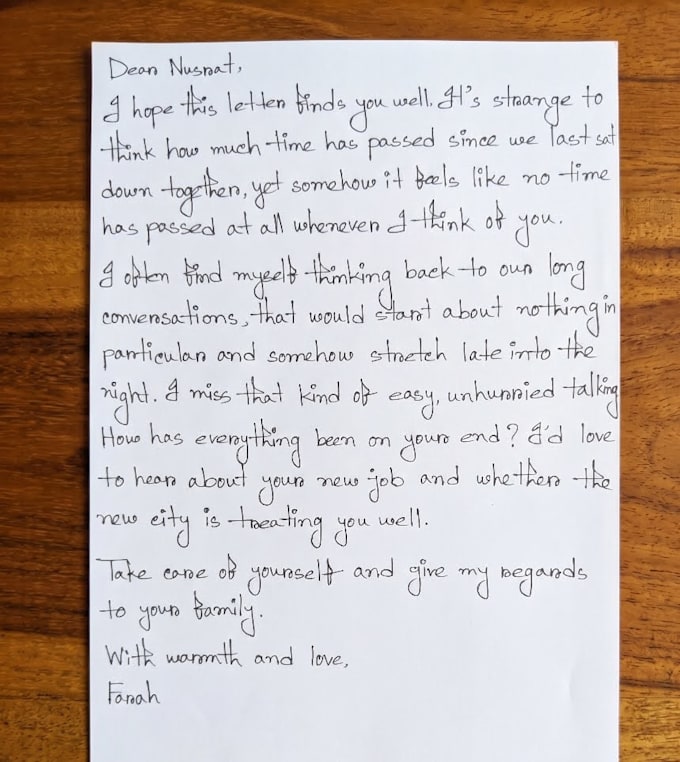 Dear Nusrat,
I hope this letter finds you well. It's strange to
think how much time has passed since we last sat
down together, yet somehow it feels like no time
has passed at all whenever I think of you.
I often find myself thinking back to our long
conversations, that would start about nothing in
particular and somehow stretch late into the
night. I miss that kind of easy, unhurried talking
How has everything been on your end? I'd love
to hear about your new job and whether the
new city is treating you well.
Take care of yourself and give my regards
to your family.
With warmth and love,
Farah